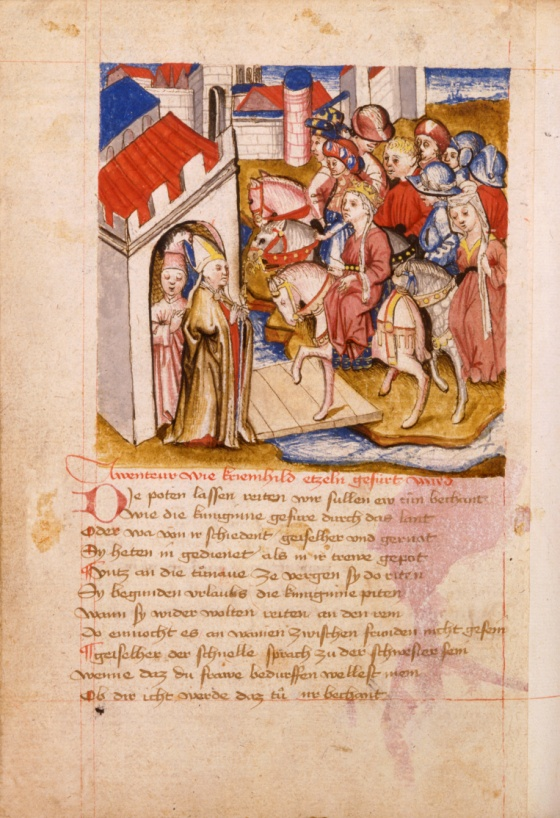 Awenteur wie kriemhild etzeln gefürt ward
Die poten lassen reiten wir sullen ew tün bechant
wie die küniginne gefüre durch das lant
Oder wa von ir schiedent geiselher vnd gernat
Sy heten in gedienet als in ir trewe gepot
Vntz an die tünaue ze vergen sy do riten
Sy begunden vrlaubs die künigynne piten
Wann sy wider wolten reiten an den rein
Do enmocht es an wainen zwischen freunden nicht gesein
Geiselher der schnelle sprach zu der schwester sein
wenne daz du frawe bedurffen wellest mein
Ob dir icht werde daz tü mir bechant